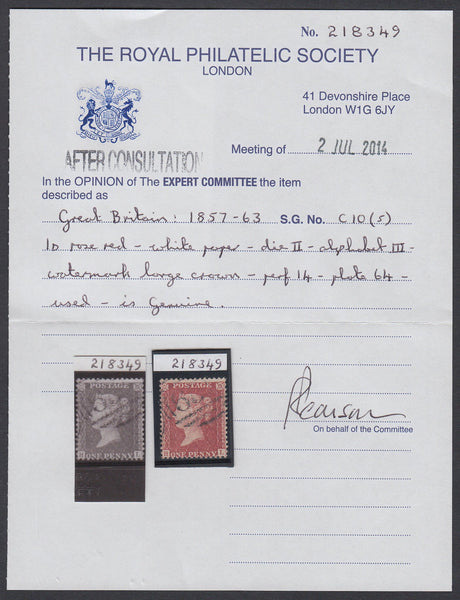 No. 218349
THE ROYAL PHILATELIC SOCIETY
LONDON
41 Devonshire Place
London W1G 6JY
AFTER CONSULTATION
Meeting of 2 JUL 2014
In the OPINION of The EXPERT COMMITTEE the item
described as
Great Britain: 1857-63 S.G. No. C10(5)
1D rose red - white paper - die II - alphabet III -
watermark large crown - perf 14 - plate 64 -
used - is Genuine.
218349
218349
POSTAGE
POSTAGE
ONE PENNY
ONE PENNY
On behalf of the Committee